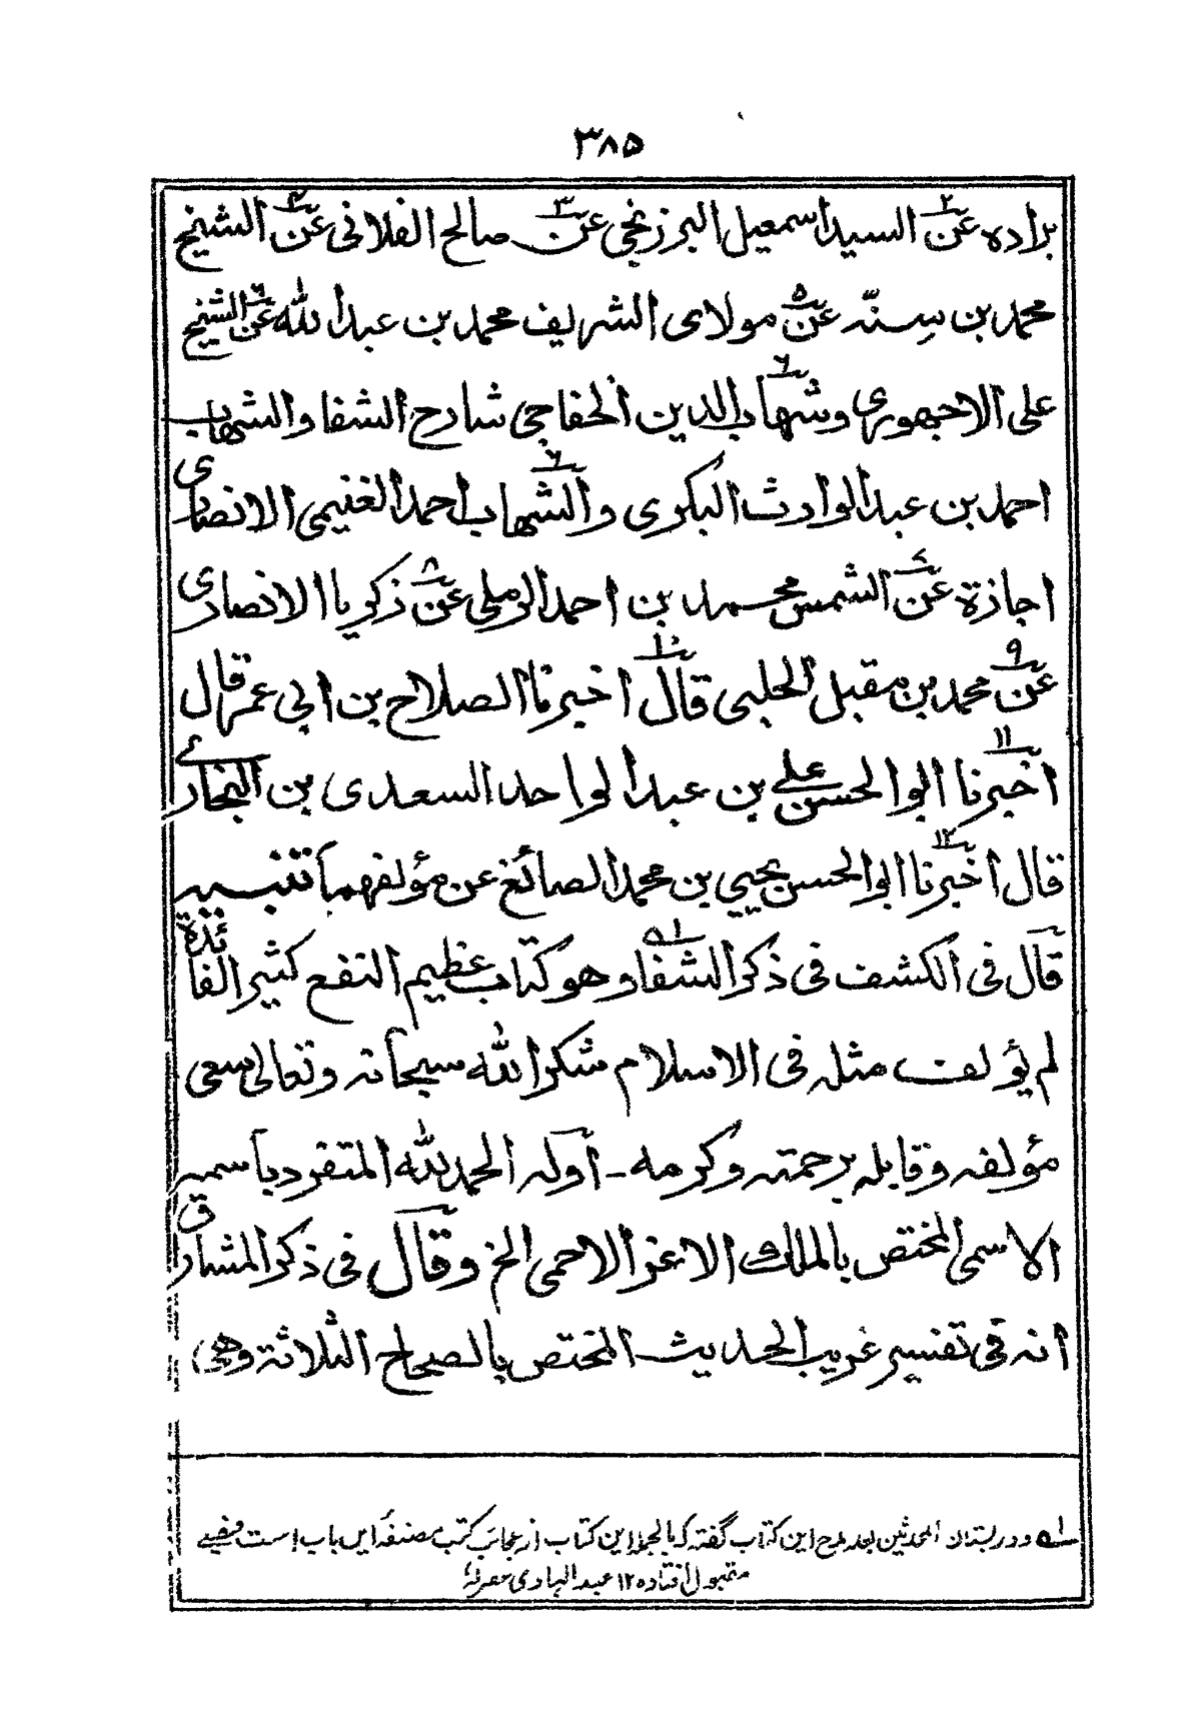 ٣٨٥
براده عن السيد اسمعيل البرزنجي عن صالح الفلاني عن الشيخ
محمد بن سِنّه عن مولاى الشريف محمد بن عبد الله عن الشيخ
على الاجهورى وشهاب الدين الخفاجى شارح الشفا والشهاب
احمد بن عبد الوارث البكرى والشهاب احمد الغنيمى الانصارى
اجازة عن الشمس محمد بن احمد الرملى عن زكريا الانصارى
عن محمد بن مقبل الحلبى قال اخبرنا الصلاح بن ابى عمر قال
اخبرنا ابوا الحسن على بن عبد الواحد السعدى بن البخارے
قال اخبرنا ابوا الحسن يحيى بن محمد الصائغ عن مؤلفهما تنبيه
قال فى الكشف فى ذكر الشفا وهو كتاب عظيم النفع كثير الفائدة
لم يؤلف مثله فى الاسلام شكر الله سبحانه وتعالى سعى
مؤلفه وقابله برحمته وكرمه - أوله الحمد لله المتفرد باسمه
الاسمى المختص بالملك الاعز الاحمى الخ وقال فى ذكر المشارق
انه فى تفسير غريب الحديث المختص بالصحاح الثلاثة وهى
۱ه ودر بستان المحدثين بعد مدح اين كتاب گفته كه بالجمله اين كتاب از عجائب كتب مصنفهٔ اين باب است
مقبول افتاده ١٢ عبد الهادى